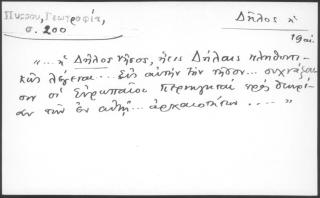 Πύρρου, Γεωγραφία,
σ. 200
Δῆλος ἡ
19 αἰ.
"... ἡ Δῆλος νῆσος, ἥτις Δήλαις πληθυντι-
κῶς λέγεται... Εἰς αὐτὴν τὴν νῆσον... συχνάζου-
σιν οἱ Εὐρωπαῖοι περιηγηταὶ πρὸς θεωρί-
αν τῶν ἐν αὐτῇ... ἀρχαιοτήτων ...."